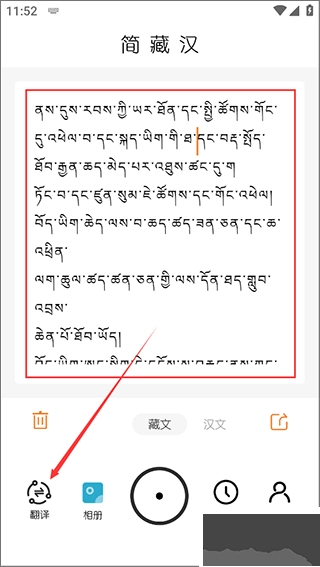 11:52
简藏汉
ནས་དུས་རབས་ཀྱི་ཡར་ཐོན་དང་སྤྱི་ཚོགས་གོང་
དུ་འཕེལ་བ་དང་སྐད་ཡིག་གི་ཐ་དང་བརྡ་སྤྲོད་
ཐོབ་རྒྱན་ཆད་མེད་པར་འཐུས་ཚང་དུ་ག
ཏོང་བ་དང་ཛུན་སུམ་ཇེ་ཚོགས་དང་གོང་འཕེལ།
བོད་ཡིག་ཆེད་ལས་བ་ཆད་ཚད་ཟན་ཅན་དང་ཆ་
འཕྲིན་
ལག་རྩལ་ཚད་ཚན་ཅན་གྱི་ལས་དོན་ཐད་གྲུབ་
འབྲས་
ཆེན་པོ་ཐོབ་ཡོད།
藏文
汉文
翻译
相册